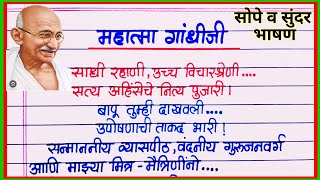 सोपे व सुंदर
भाषण
महात्मा गांधीजी
साधी रहाणी, उच्च विचारश्रेणी....
सत्य अहिंसेचे नित्य पुजारी!
बापू तुम्ही दाखवली....
उपोषणाची ताकद भारी!
सन्माननीय व्यासपीठ, वंदनीय गुरुजनवर्ग
आणि माझ्या मित्र-मैत्रिणींनो....